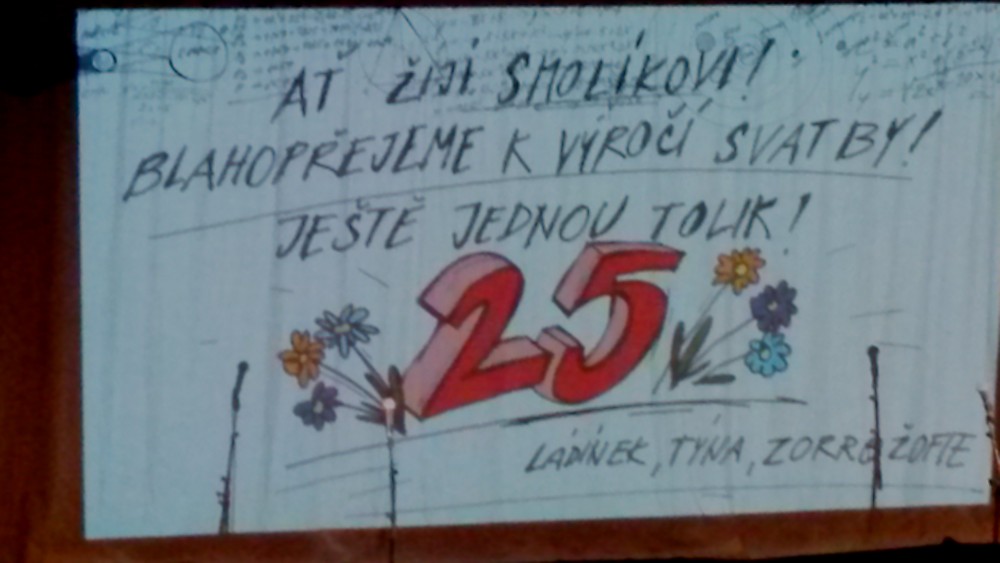 AŤ ŽIJÍ SMOLÍKOVI!
BLAHOPŘEJEME K VÝROČÍ SVATBY!
JEŠTĚ JEDNOU TOLIK!
25
LADÍNEK, TÝNA, ZORRO ŽOFIE